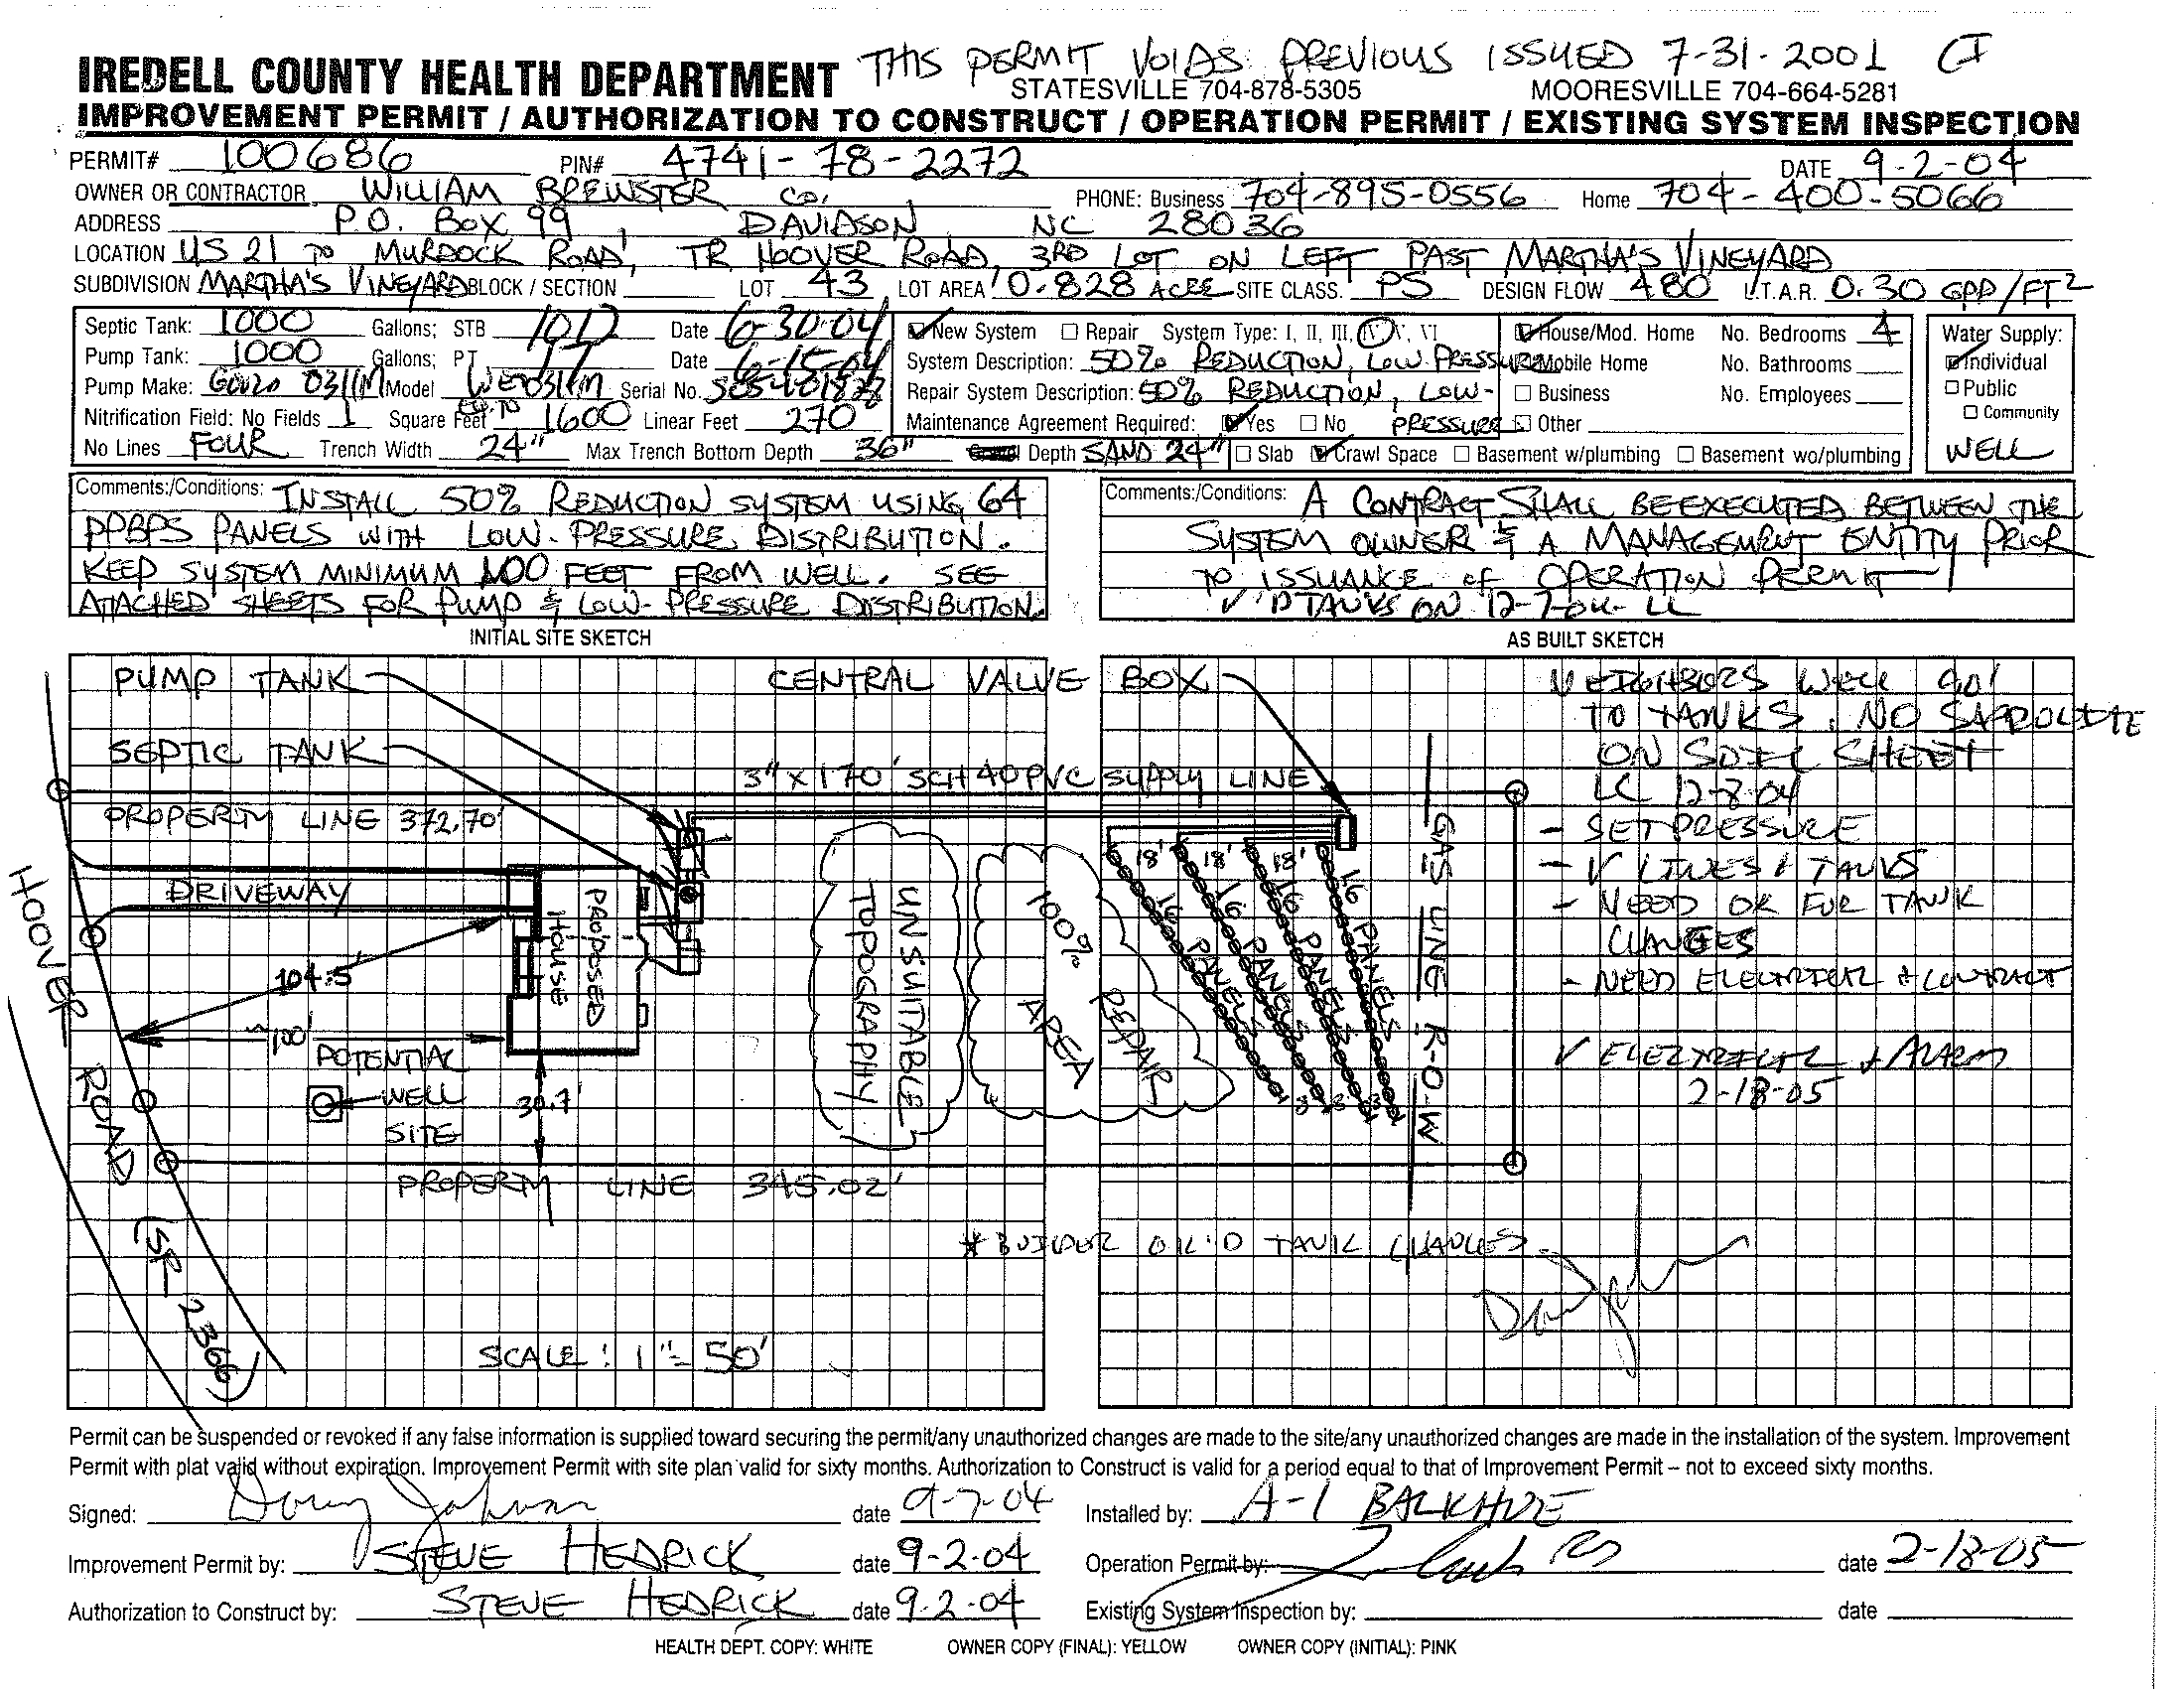 THIS PERMIT VOIDS PREVIOUS ISSUED 7-31-2001
IREDELL COUNTY HEALTH DEPARTMENT
STATESVILLE 704-878-5305 MOORESVILLE 704-664-5281
IMPROVEMENT PERMIT / AUTHORIZATION TO CONSTRUCT / OPERATION PERMIT / EXISTING SYSTEM INSPECTION
PERMIT# 100686 PIN# 4741-78-2272 DATE 9-2-04
OWNER OR CONTRACTOR WILLIAM BREWSTER CO. PHONE: Business 704-895-0556 Home 704-400-5066
ADDRESS P.O. BOX 99, DAVIDSON, NC 28036
LOCATION US 21 TO MURDOCK ROAD, TR HOOVER ROAD, 3RD LOT ON LEFT PAST MARTHA'S VINEYARD
SUBDIVISION MARTHA'S VINEYARD BLOCK / SECTION LOT 43 LOT AREA 0.828 ACRE SITE CLASS. PS DESIGN FLOW 480 L.T.A.R. 0.30 GPD/FT2
Septic Tank: 1000 Gallons; STB 1012 Date 6-30-04
Pump Tank: 1000 Gallons; PT Date 6-15-04
Pump Make: Model Serial No.
Nitrification Field: No Fields 1 Square Feet 1600 Linear Feet 270
No Lines FOUR Trench Width 24" Max Trench Bottom Depth 36" Depth SAND 24"
New System Repair System Type: I, II, III, IV, V, VI
System Description: 50% REDUCTION, LOW-PRESSURE
Repair System Description: 50% REDUCTION, LOW-
Maintenance Agreement Required: Yes No PRESSURE
House/Mod. Home No. Bedrooms 4
Mobile Home No. Bathrooms
Business No. Employees
Other
Slab Crawl Space Basement w/plumbing Basement wo/plumbing
Water Supply:
Individual
Public
Community
WELL
Comments:/Conditions: INSTALL 50% REDUCTION SYSTEM USING 64
PPBPS PANELS WITH LOW-PRESSURE DISTRIBUTION.
KEEP SYSTEM MINIMUM 100 FEET FROM WELL. SEE
ATTACHED SHEETS FOR PUMP & LOW-PRESSURE DISTRIBUTION.
Comments:/Conditions: A CONTRACT SHALL BE EXECUTED BETWEEN THE
SYSTEM OWNER & A MANAGEMENT ENTITY PRIOR
TO ISSUANCE OF OPERATION PERMIT
TANKS ON 12-7-04
INITIAL SITE SKETCH
AS BUILT SKETCH
PUMP TANK
CENTRAL VALVE BOX
SEPTIC TANK
3" X 170' SCH 40 PVC SUPPLY LINE
PROPERTY LINE 372.70'
DRIVEWAY
PROPOSED
HOUSE
104.5'
~100'
POTENTIAL
WELL
SITE
30.7'
PROPERTY LINE 345.02'
HOOVER ROAD (SR 2366)
UNSUITABLE
TOPOGRAPHY
100%
REPAIR
AREA
18' 18' 18'
16 PANELS
16 PANELS
16 PANELS
16 PANELS
GAS LINE R-O-W
NEIGHBORS WELL 90'
TO TANKS. NO SAPROLITE
ON SOIL SHEET
LC 12-8-04
- SET PRESSURE
- √ LINES & TANKS
- NEED OK FOR TANK
CHANGES
- NEED ELECTRICAL & CONTRACT
√ ELECTRICAL + ALARM
2-18-05
* BUILDER OK'D TANK CHANGES
SCALE: 1" = 50'
Permit can be suspended or revoked if any false information is supplied toward securing the permit/any unauthorized changes are made to the site/any unauthorized changes are made in the installation of the system. Improvement
Permit with plat valid without expiration. Improvement Permit with site plan valid for sixty months. Authorization to Construct is valid for a period equal to that of Improvement Permit – not to exceed sixty months.
Signed: Doug Johnson date 9-7-04 Installed by: A-1 BACKHOE
Improvement Permit by: STEVE HEDRICK date 9-2-04 Operation Permit by: date 2-18-05
Authorization to Construct by: STEVE HEDRICK date 9-2-04 Existing System Inspection by: date
HEALTH DEPT. COPY: WHITE OWNER COPY (FINAL): YELLOW OWNER COPY (INITIAL): PINK